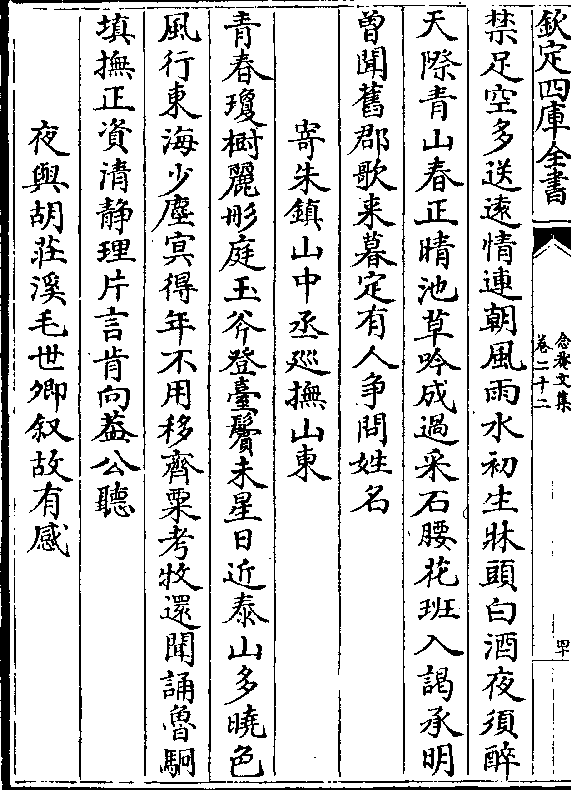 欽定四庫全書
念菴文集
卷二十二
罕
禁足空多送逺情連朝風雨水初生牀頭白酒夜須醉
天際青山春正晴池草吟成過采石腰花班入謁承明
曽聞舊郡歌来暮定有人爭問姓名
寄朱鎮山中丞廵撫山東
青春瓊樹麗彤庭玉斧登臺鬢未星日近泰山多曉色
風行東海少塵㝠得年不用移齊粟考牧還聞誦魯駉
填撫正資清静理片言肯向葢公聽
夜與胡莊溪毛世卿叙故有感